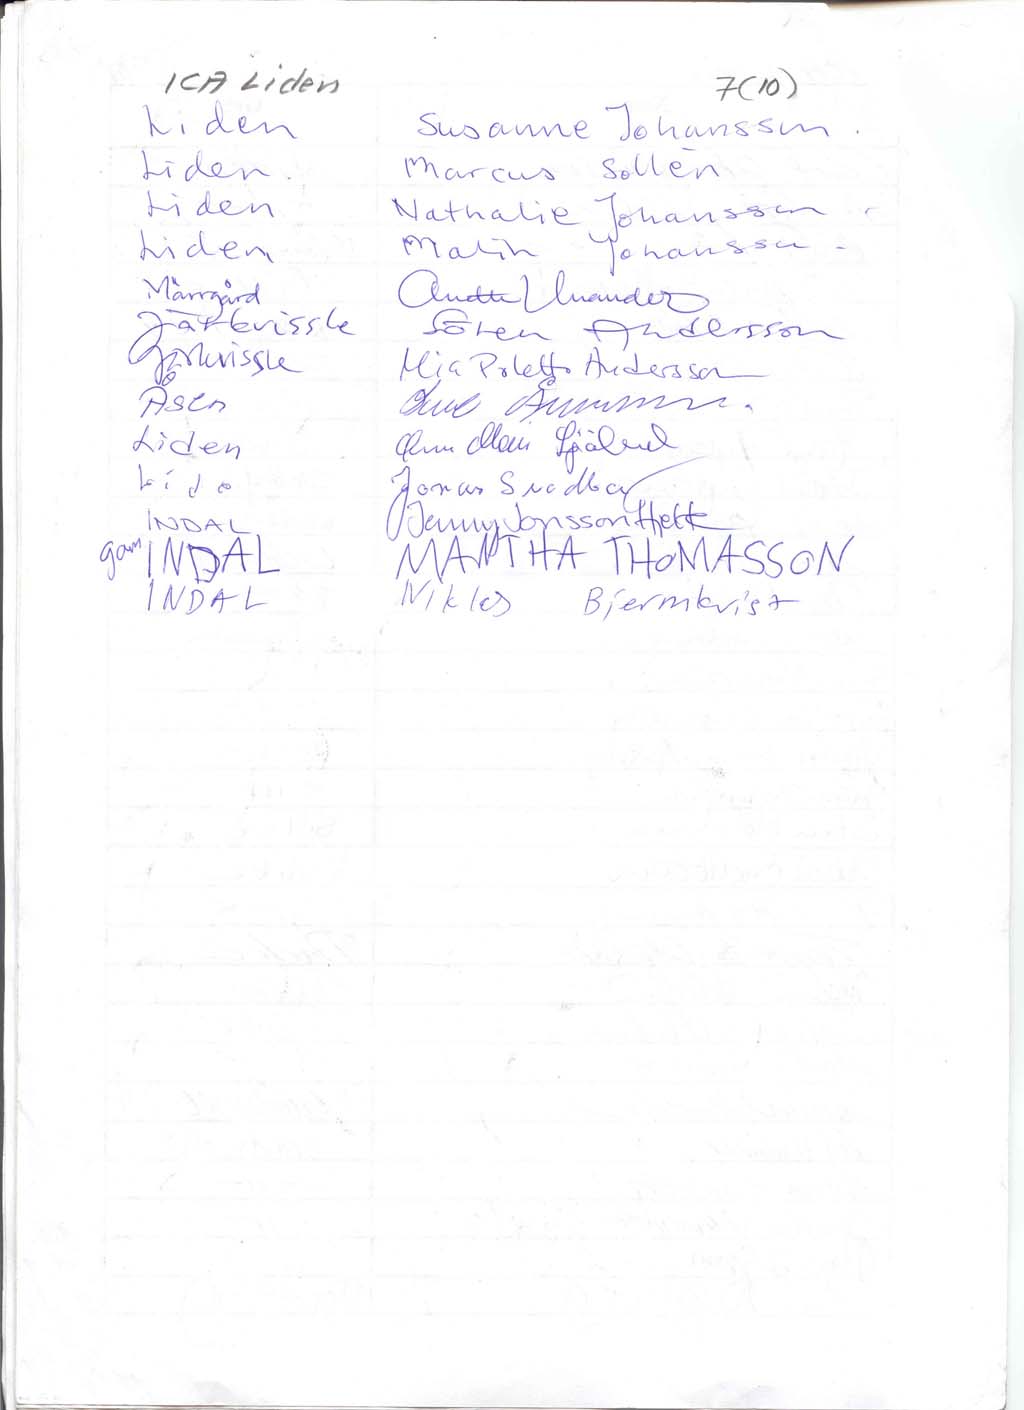 ICA Liden 7(10)
Liden Susanne Johansson.
Liden. Marcus Sollén
Liden Nathalie Johansson.
Liden Malin Johansson -
Märrgård Anette
Järkvissle Sören Andersson
Järkvissle Mia Poletto Andersson
Åsen
Liden Ann Mari
Lide Jonas
INDAL Jenny Jonsson Hjelte
gam INDAL MARTHA THOMASSON
INDAL Niklas Bjermkvist